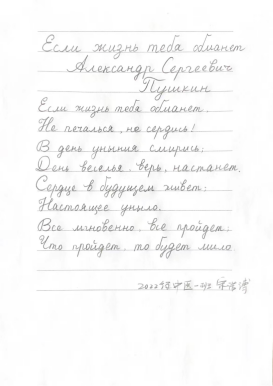 Если жизнь тебя обманет
Александр Сергеевич
Пушкин
Если жизнь тебя обманет,
Не печалься, не сердись!
В день уныния смирись:
День веселья, верь, настанет.
Сердце в будущем живет;
Настоящее уныло:
Все мгновенно, все пройдет;
Что пройдет, то будет мило
2022级中医一班